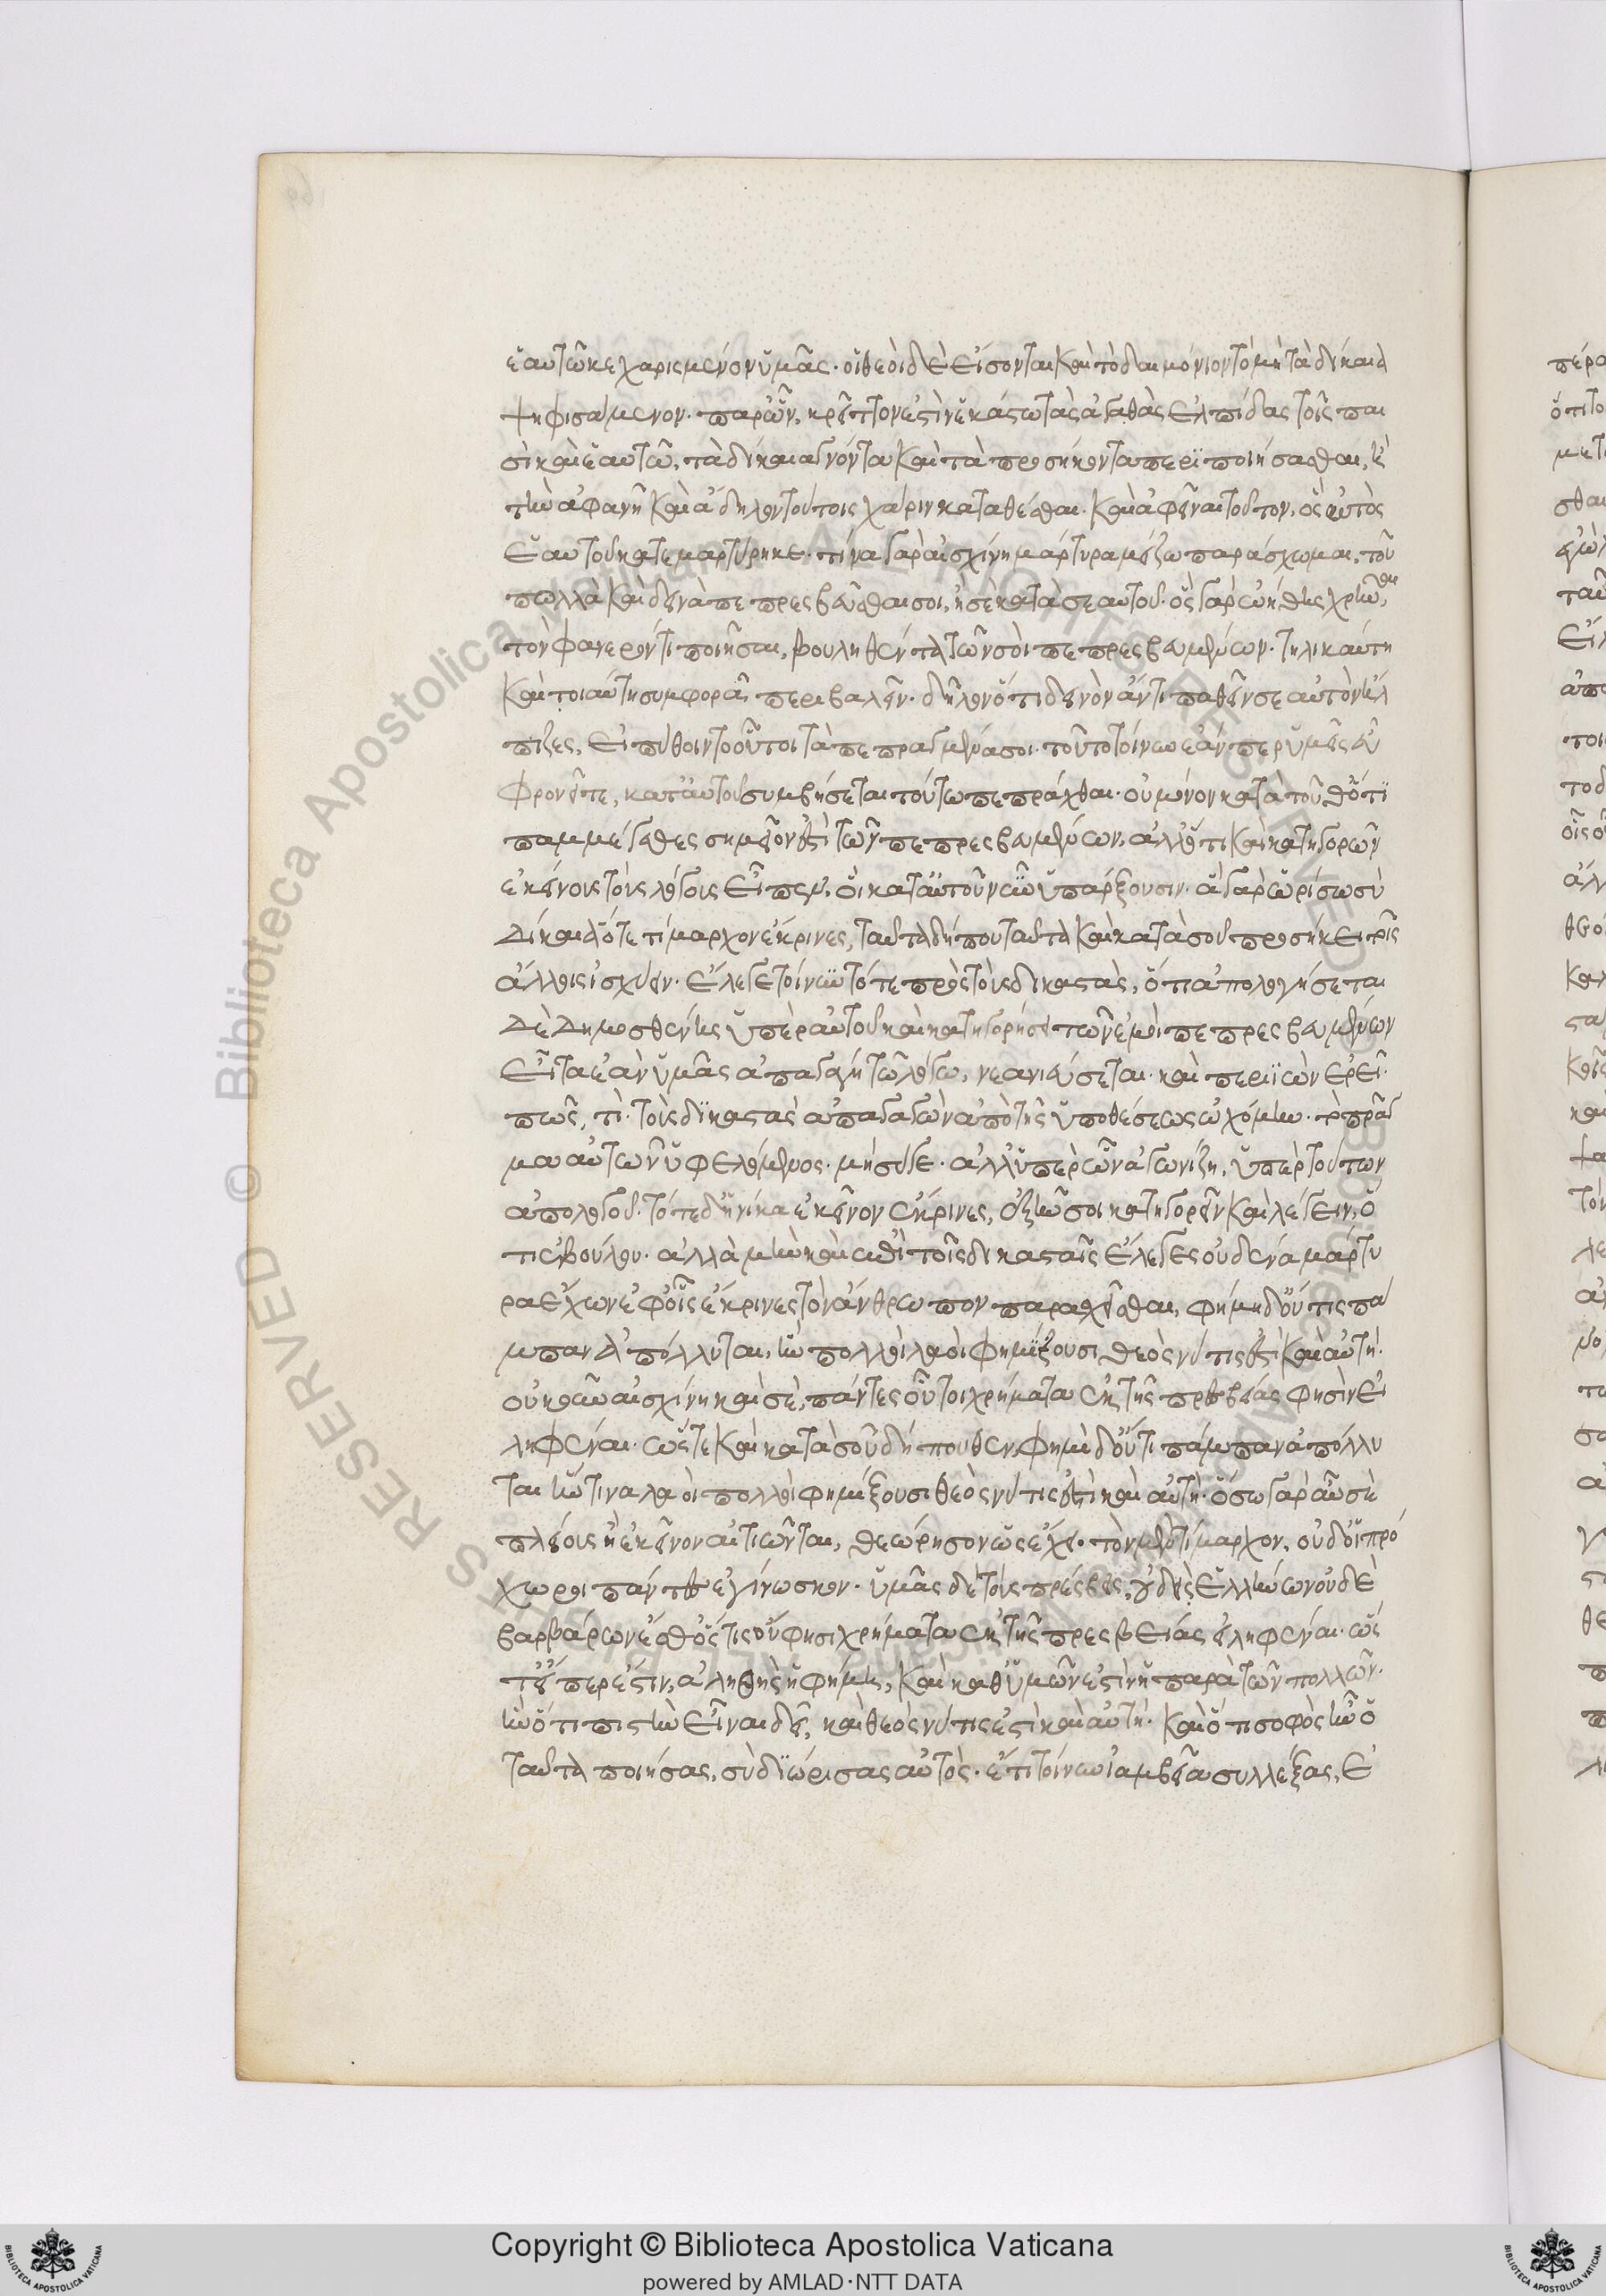 ἑαυτῶ κεχαρισμένον ὑμᾶς· οἱ θεοὶ δὲ εἴσονται καὶ τὸ δαιμόνιον τὸ μὴ τὰ δίκαια
ψηφισάμενον· παρ' ὧν, κρεῖττον ἐστὶν ἑκάστω τὰς ἀγαθὰς ἐλπίδας τοῖς παι
σὶ καὶ ἑαυτῶ, τὰ δίκαια γνόντα καὶ τὰ προσήκοντα περιποιήσασθαι, ἢ
τὴν ἀφανῆ καὶ ἄδηλον τούτοις χάριν καταθέσθαι· καὶ ἀφεῖναι τοῦτον, ὃς αὐτὸς
ἑαυτοῦ καταμεμαρτύρηκε· τίνα γὰρ αἰσχίνη μάρτυρα μείζω παράσχωμαι, τοῦ
πολλὰ καὶ δεινὰ πεπρεσβεῦσθαί σοι, ἢ σὲ κατὰ σεαυτοῦ· ὃς γὰρ ὠήθης χρῆναι
τὸν φανερόν τι ποιῆσαι, βουληθέντα τῶν σοὶ πεπρεσβευμένων· τηλικαύτη
καὶ τοιαύτη συμφορᾶ περιβαλεῖν· δῆλον ὅτι δεινὸν ἄν τι παθεῖν σεαυτὸν ἤλ
πιζες, εἰ πύθοινθ' οὗτοι τὰ πεπραγμένα σοι· τοῦτο τοίνυν ἐάνπερ ὑμεῖς εὖ
φρονῆτε, κατ' αὐτοῦ συμβήσεται τούτω πεπράχθαι· οὐ μόνον κατὰ τοῦθ' ὅτι
παμμέγαθες σημεῖον ἐστὶ τῶν πεπρεσβευμένων, ἀλλ' ὅτι καὶ κατηγορῶν
ἐκείνους τοὺς λόγους εἶπεν, οἳ κατ' αὐτοῦ νῦν ὑπάρξουσιν· ἃ γὰρ ὡρίσω σὺ
δίκαια ὅτε τίμαρχον ἔκρινες, ταῦτα δήπου ταῦτα καὶ κατὰ σοῦ προσήκει τοῖς
ἄλλοις ἰσχύειν· ἔλεγε τοίνυν τότε πρὸς τοὺς δικαστὰς, ὅτι ἀπολογήσεται
δὲ Δημοσθένης ὑπὲρ αὐτοῦ καὶ κατηγορήσει τῶν ἐμοὶ πεπρεσβευμένων
εἶτα ἐὰν ὑμᾶς ἀπαγάγη τῶ λόγω, νεανιεύσεται· καὶ περιϊὼν ἐρεῖ·
πῶς, τί· τοὺς δικαστὰς ἀπαγαγὼν ἀπὸ τῆς ὑποθέσεως ὠχόμην· τὸ πρᾶγ
μα αὐτῶν ὑφελόμενος· μὴ σύ γε· ἀλλ' ὑπὲρ ὧν ἀγωνίζη, ὑπὲρ τούτων
ἀπολογοῦ· τότε δ' ἡνίκα ἐκεῖνον ἔκρινες, ἐξῆν σοι κατηγορεῖν καὶ λέγειν, ὅ
τι ἐβούλου· ἀλλὰ μὴν καὶ ἔπη τοῖς δικασταῖς ἔλεγες οὐδένα μάρτυ
ρα ἔχων ἐφ' οἷς ἔκρινες τὸν ἄνθρωπον παρασχέσθαι, φήμη δ' οὔτις πά
μπαν ἀπόλλυται, ἣν πολλοὶ λαοὶ φημίξουσι, θεός νύ τις ἐστὶ καὶ αὐτή·
οὐκοῦν αἰσχίνη καὶ σὲ, πάντες οὗτοι χρήματα ἐκ τῆς πρεσβείας φησὶν εἰ
ληφέναι· ὥστε καὶ κατὰ σοῦ δήπουθεν, φήμη δ' οὔτι πάμπαν ἀπόλλυ
ται ἥν τινα λαοὶ πολλοὶ φημίξουσι θεός νύ τις ἐστὶ καὶ αὐτή· ὅσω γὰρ αὖ σὲ
πλείους ἢ ἐκεῖνον αἰτιῶνται, θεώρησον ὡς ἔχει· τὸν μὲν τίμαρχον, οὐδ' οἱ πρό
χωροι πάντες ἐγίνωσκον· ὑμᾶς δὲ τοὺς πρέσβεις, οὐδεὶς ἑλλήνων οὐδὲ
βαρβάρων ἔσθ' ὅστις οὔ φησι χρήματα ἐκ τῆς πρεσβείας εἰληφέναι· ὥσ
τ' εἴπερ ἐστὶν, ἀληθὴς ἡ φήμη, καὶ καθ' ὑμῶν ἐστὶν ἡ παρὰ τῶν πολλῶν·
ἣν ὅτι πιστὴν εἶναι δεῖ, καὶ θεός νύ τις ἐστὶ καὶ αὐτή· καὶ ὅτι σοφὸς ἦν ὁ
ταῦτα ποιήσας, σὺ διώρισας αὐτὸς· ἔτι τοίνυν ἰαμβεῖα συλλέξας, ἐ
Copyright © Biblioteca Apostolica Vaticana
powered by AMLAD·NTT DATA